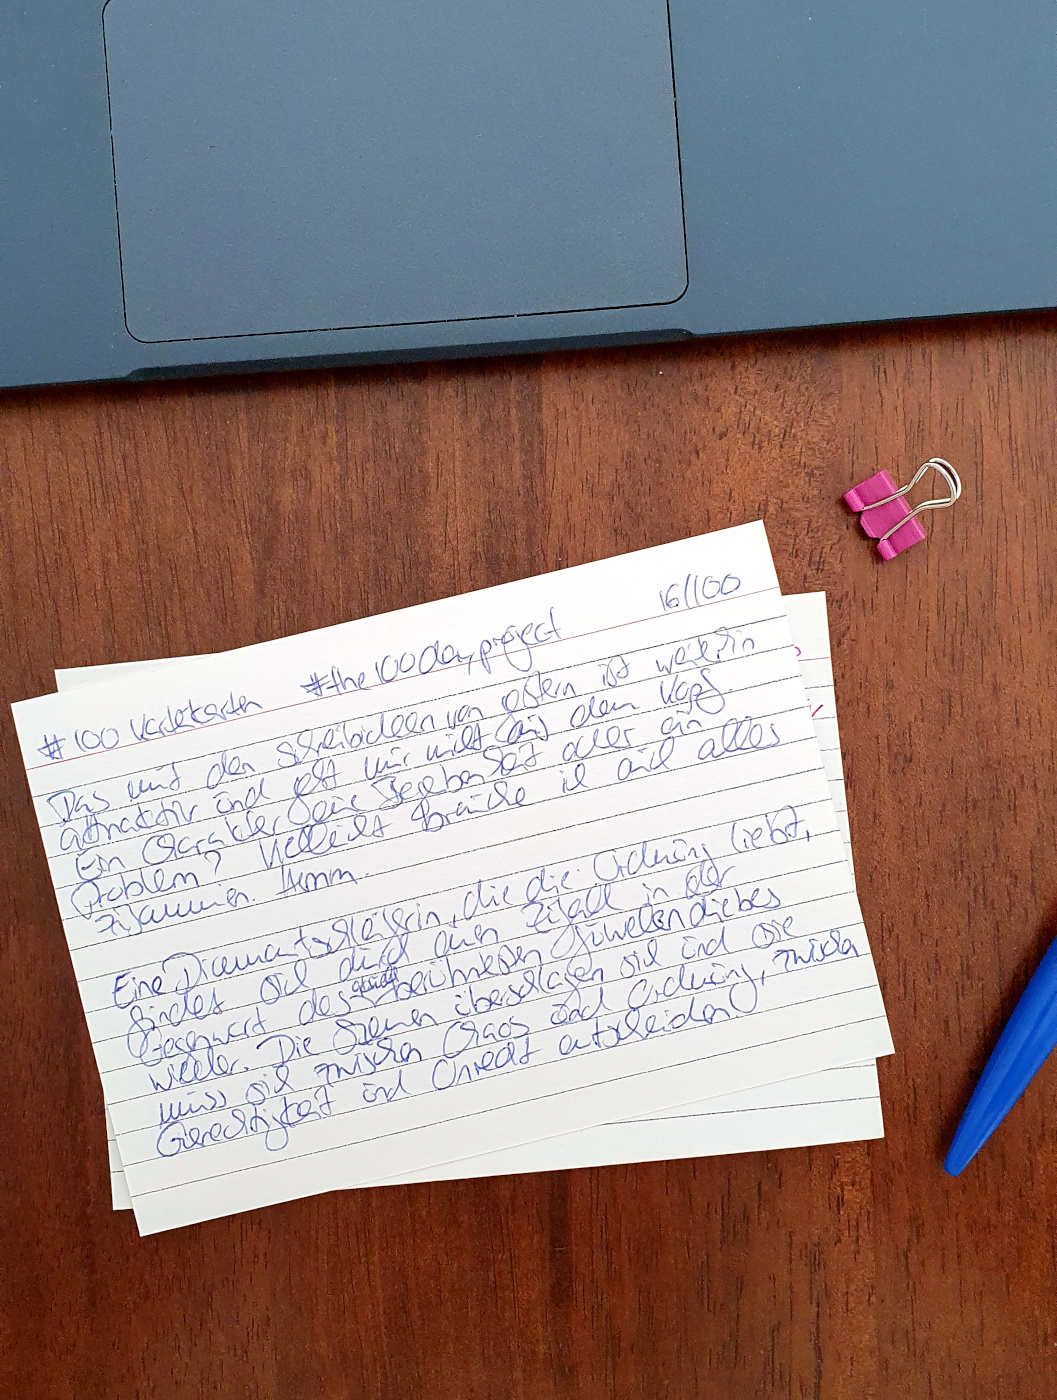 #100 Karteikarten #the100dayproject 16/100
Das mit den Schreibideen von gestern ist weiterhin
attraktiv und geht mir nicht aus dem Kopf.
Ein Charakter, eine Begebenheit oder ein
Problem? Vielleicht bräuchte ich auch alles
zusammen. Hmm.
Eine Diamantschleiferin, die die Ordnung liebt,
findet sich durch einen Zufall in der
Gegenwart des berühmtesten Juwelendiebes
wieder. Die Szenen überschlagen sich und sie
muss sich zwischen Chaos und Ordnung, zwischen
Gerechtigkeit und Unrecht entscheiden